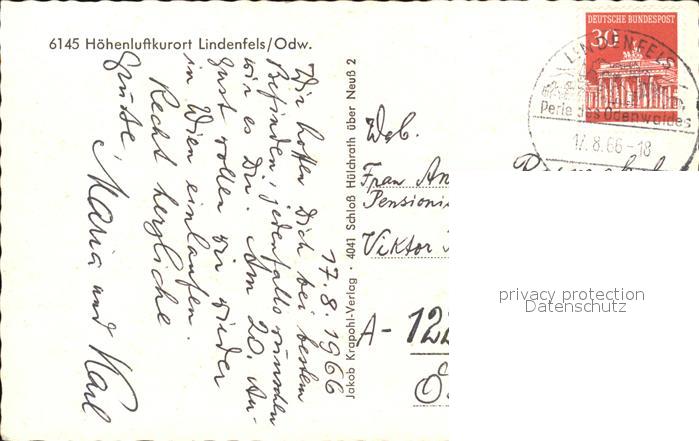 6145 Höhenluftkurort Lindenfels/Odw.
17.8.1966
Wir hoffen Dich bei bestem
Befinden, jedenfalls wünschen
wir es Dir. Am 20. Au-
gust wollen wir wieder
in Wien einlaufen.
Recht herzliche
Grüße, Maria und Karl
Jakob Krapohl-Verlag · 4041 Schloß Hülchrath über Neuß 2
DEUTSCHE BUNDESPOST
30
LINDENFELS
Perle des Odenwaldes
17.8.66-18
Frau
Viktor
A-
privacy protection
Datenschutz